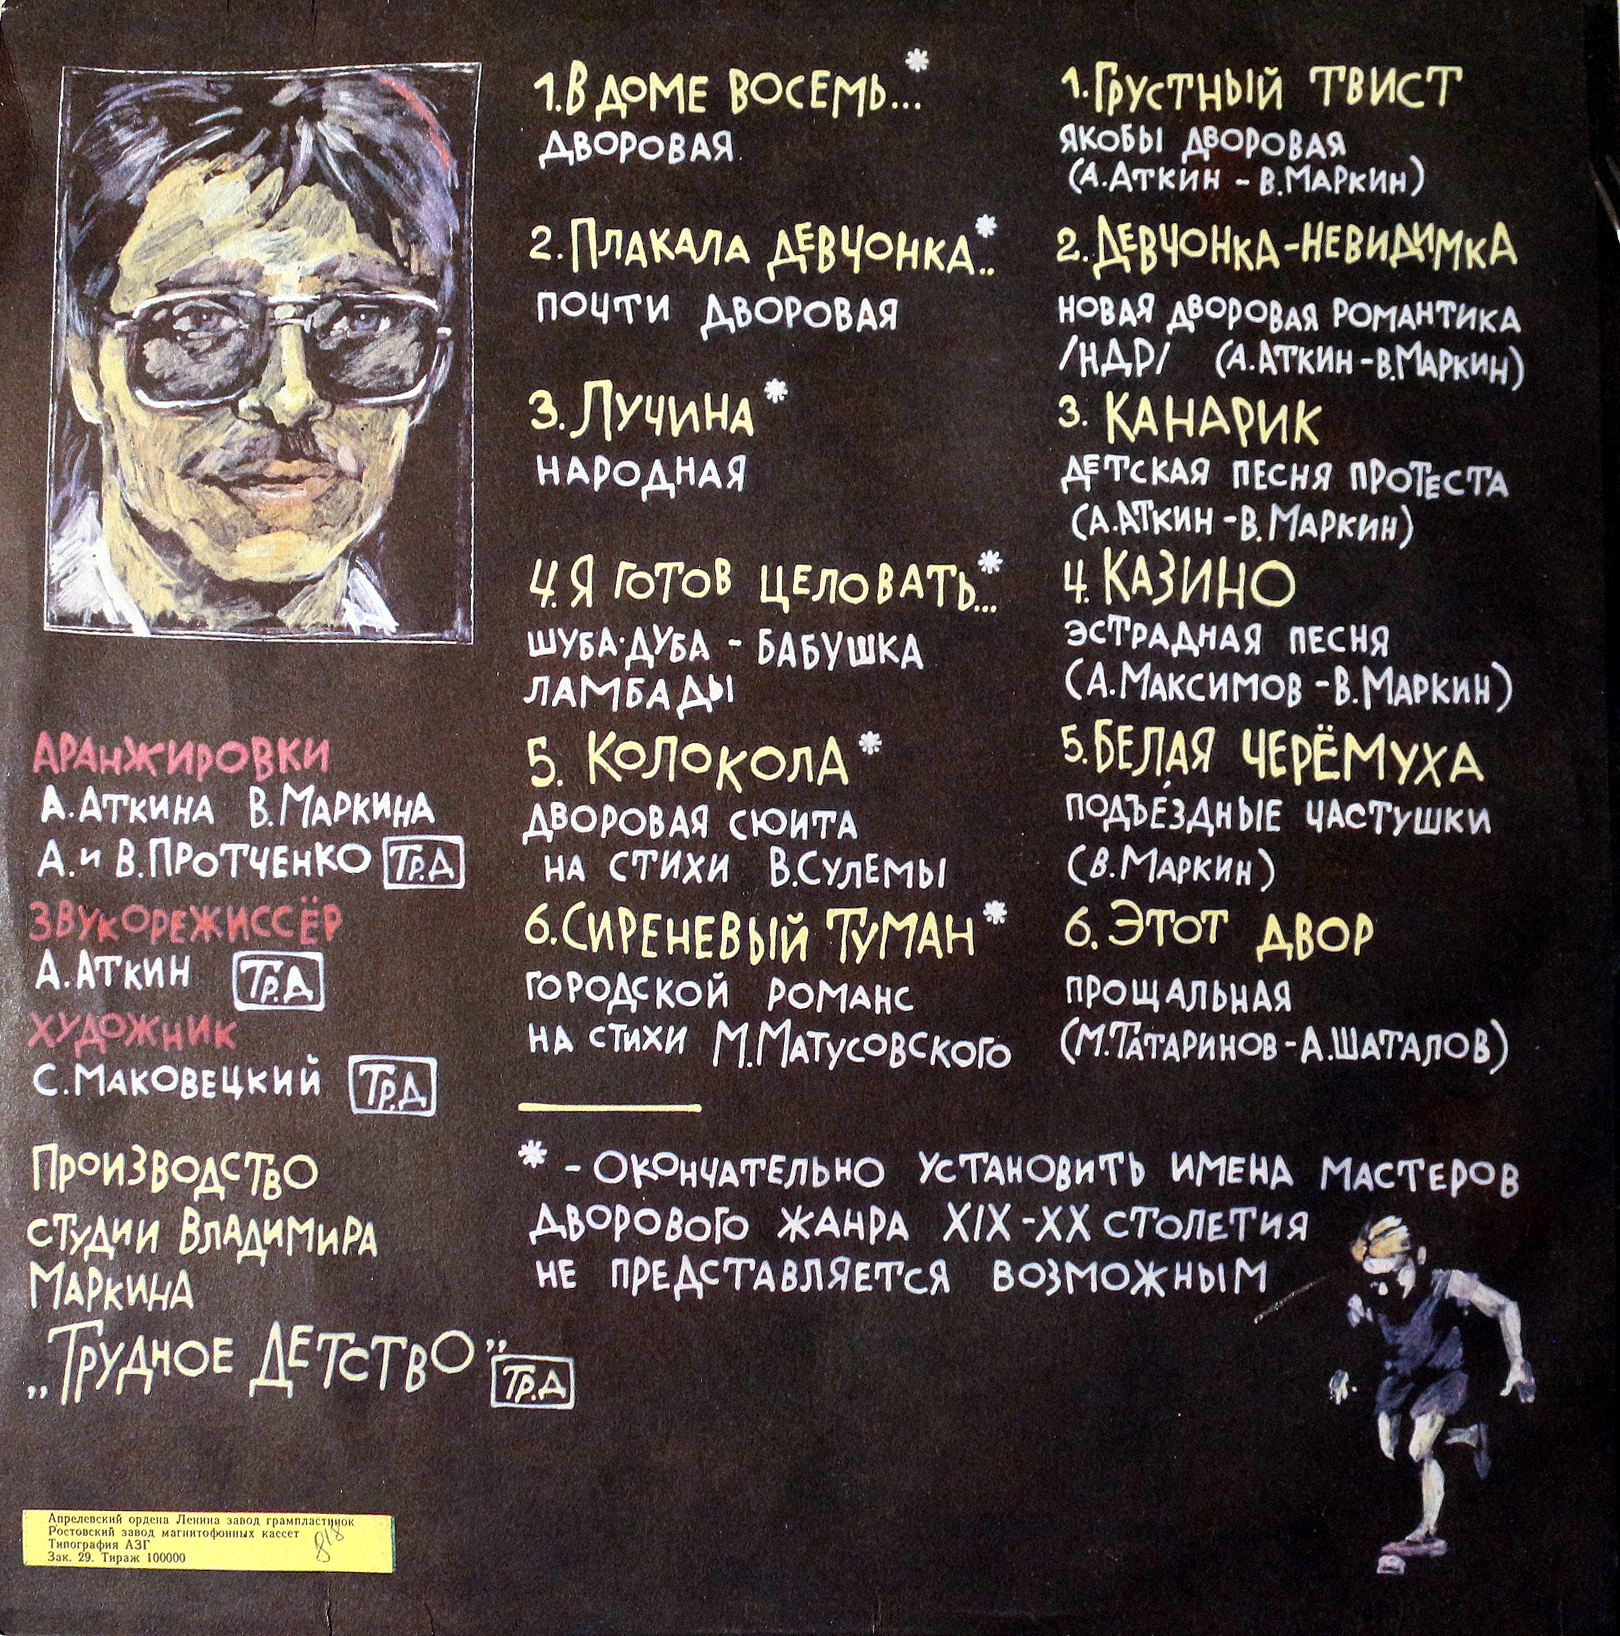 1. В ДОМЕ ВОСЕМЬ...*
ДВОРОВАЯ
2. ПЛАКАЛА ДЕВЧОНКА..*
ПОЧТИ ДВОРОВАЯ
3. ЛУЧИНА*
НАРОДНАЯ
4. Я ГОТОВ ЦЕЛОВАТЬ...*
ШУБА-ДУБА - БАБУШКА
ЛАМБАДЫ
5. КОЛОКОЛА*
ДВОРОВАЯ СЮИТА
НА СТИХИ В.СУЛЕМЫ
6. СИРЕНЕВЫЙ ТУМАН*
ГОРОДСКОЙ РОМАНС
НА СТИХИ М.МАТУСОВСКОГО
1. ГРУСТНЫЙ ТВИСТ
ЯКОБЫ ДВОРОВАЯ
(А.АТКИН - В.МАРКИН)
2. ДЕВЧОНКА-НЕВИДИМКА
НОВАЯ ДВОРОВАЯ РОМАНТИКА
/НДР/ (А.АТКИН - В.МАРКИН)
3. КАНАРИК
ДЕТСКАЯ ПЕСНЯ ПРОТЕСТА
(А.АТКИН - В.МАРКИН)
4. КАЗИНО
ЭСТРАДНАЯ ПЕСНЯ
(А.МАКСИМОВ - В.МАРКИН)
5. БЕЛАЯ ЧЕРЁМУХА
ПОДЪЕЗДНЫЕ ЧАСТУШКИ
(В.МАРКИН)
6. ЭТОТ ДВОР
ПРОЩАЛЬНАЯ
(М.ТАТАРИНОВ - А.ШАТАЛОВ)
АРАНЖИРОВКИ
А.АТКИНА В.МАРКИНА
А. и В.ПРОТЧЕНКО ТР.Д
ЗВУКОРЕЖИССЁР
А.АТКИН ТР.Д
ХУДОЖНИК
С.МАКОВЕЦКИЙ ТР.Д
ПРОИЗВОДСТВО
СТУДИИ ВЛАДИМИРА
МАРКИНА
„ТРУДНОЕ ДЕТСТВО” ТР.Д
* - ОКОНЧАТЕЛЬНО УСТАНОВИТЬ ИМЕНА МАСТЕРОВ
ДВОРОВОГО ЖАНРА XIX-XX СТОЛЕТИЯ
НЕ ПРЕДСТАВЛЯЕТСЯ ВОЗМОЖНЫМ
Апрелевский ордена Ленина завод грампластинок
Ростовский завод магнитофонных кассет
Типография АЗГ
Зак. 29. Тираж 100000
818